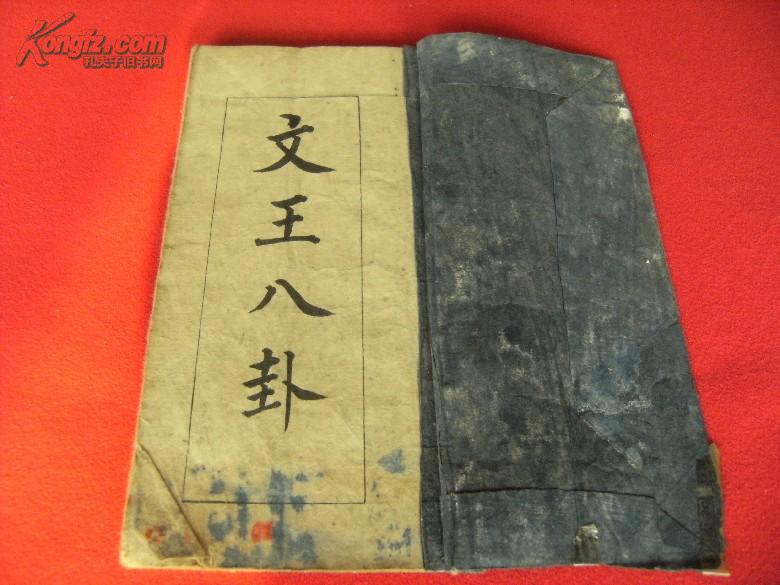 Kongfz.com
孔夫子旧书网
文王八卦